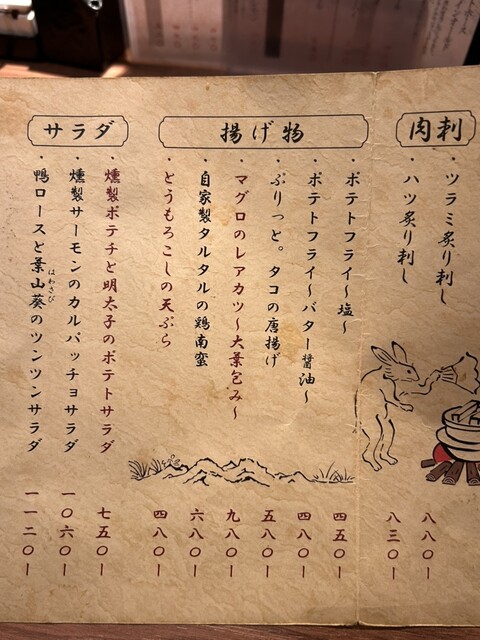 肉刺
・ツラミ炙り刺し 八八〇ー
・ハツ炙り刺し 八三〇ー
揚げ物
・ポテトフライ〜塩〜 四五〇ー
・ポテトフライ〜バター醤油〜 四八〇ー
・ぷりっと。タコの唐揚げ 五八〇ー
・マグロのレアカツ〜大葉包み〜 九八〇ー
・自家製タルタルの鶏南蛮 六八〇ー
・とうもろこしの天ぷら 四八〇ー
サラダ
・燻製ポテチと明太子のポテトサラダ 七五〇ー
・燻製サーモンのカルパッチョサラダ 一〇六〇ー
・鴨ロースと葉山葵のツンツンサラダ 一一二〇ー
はわさび